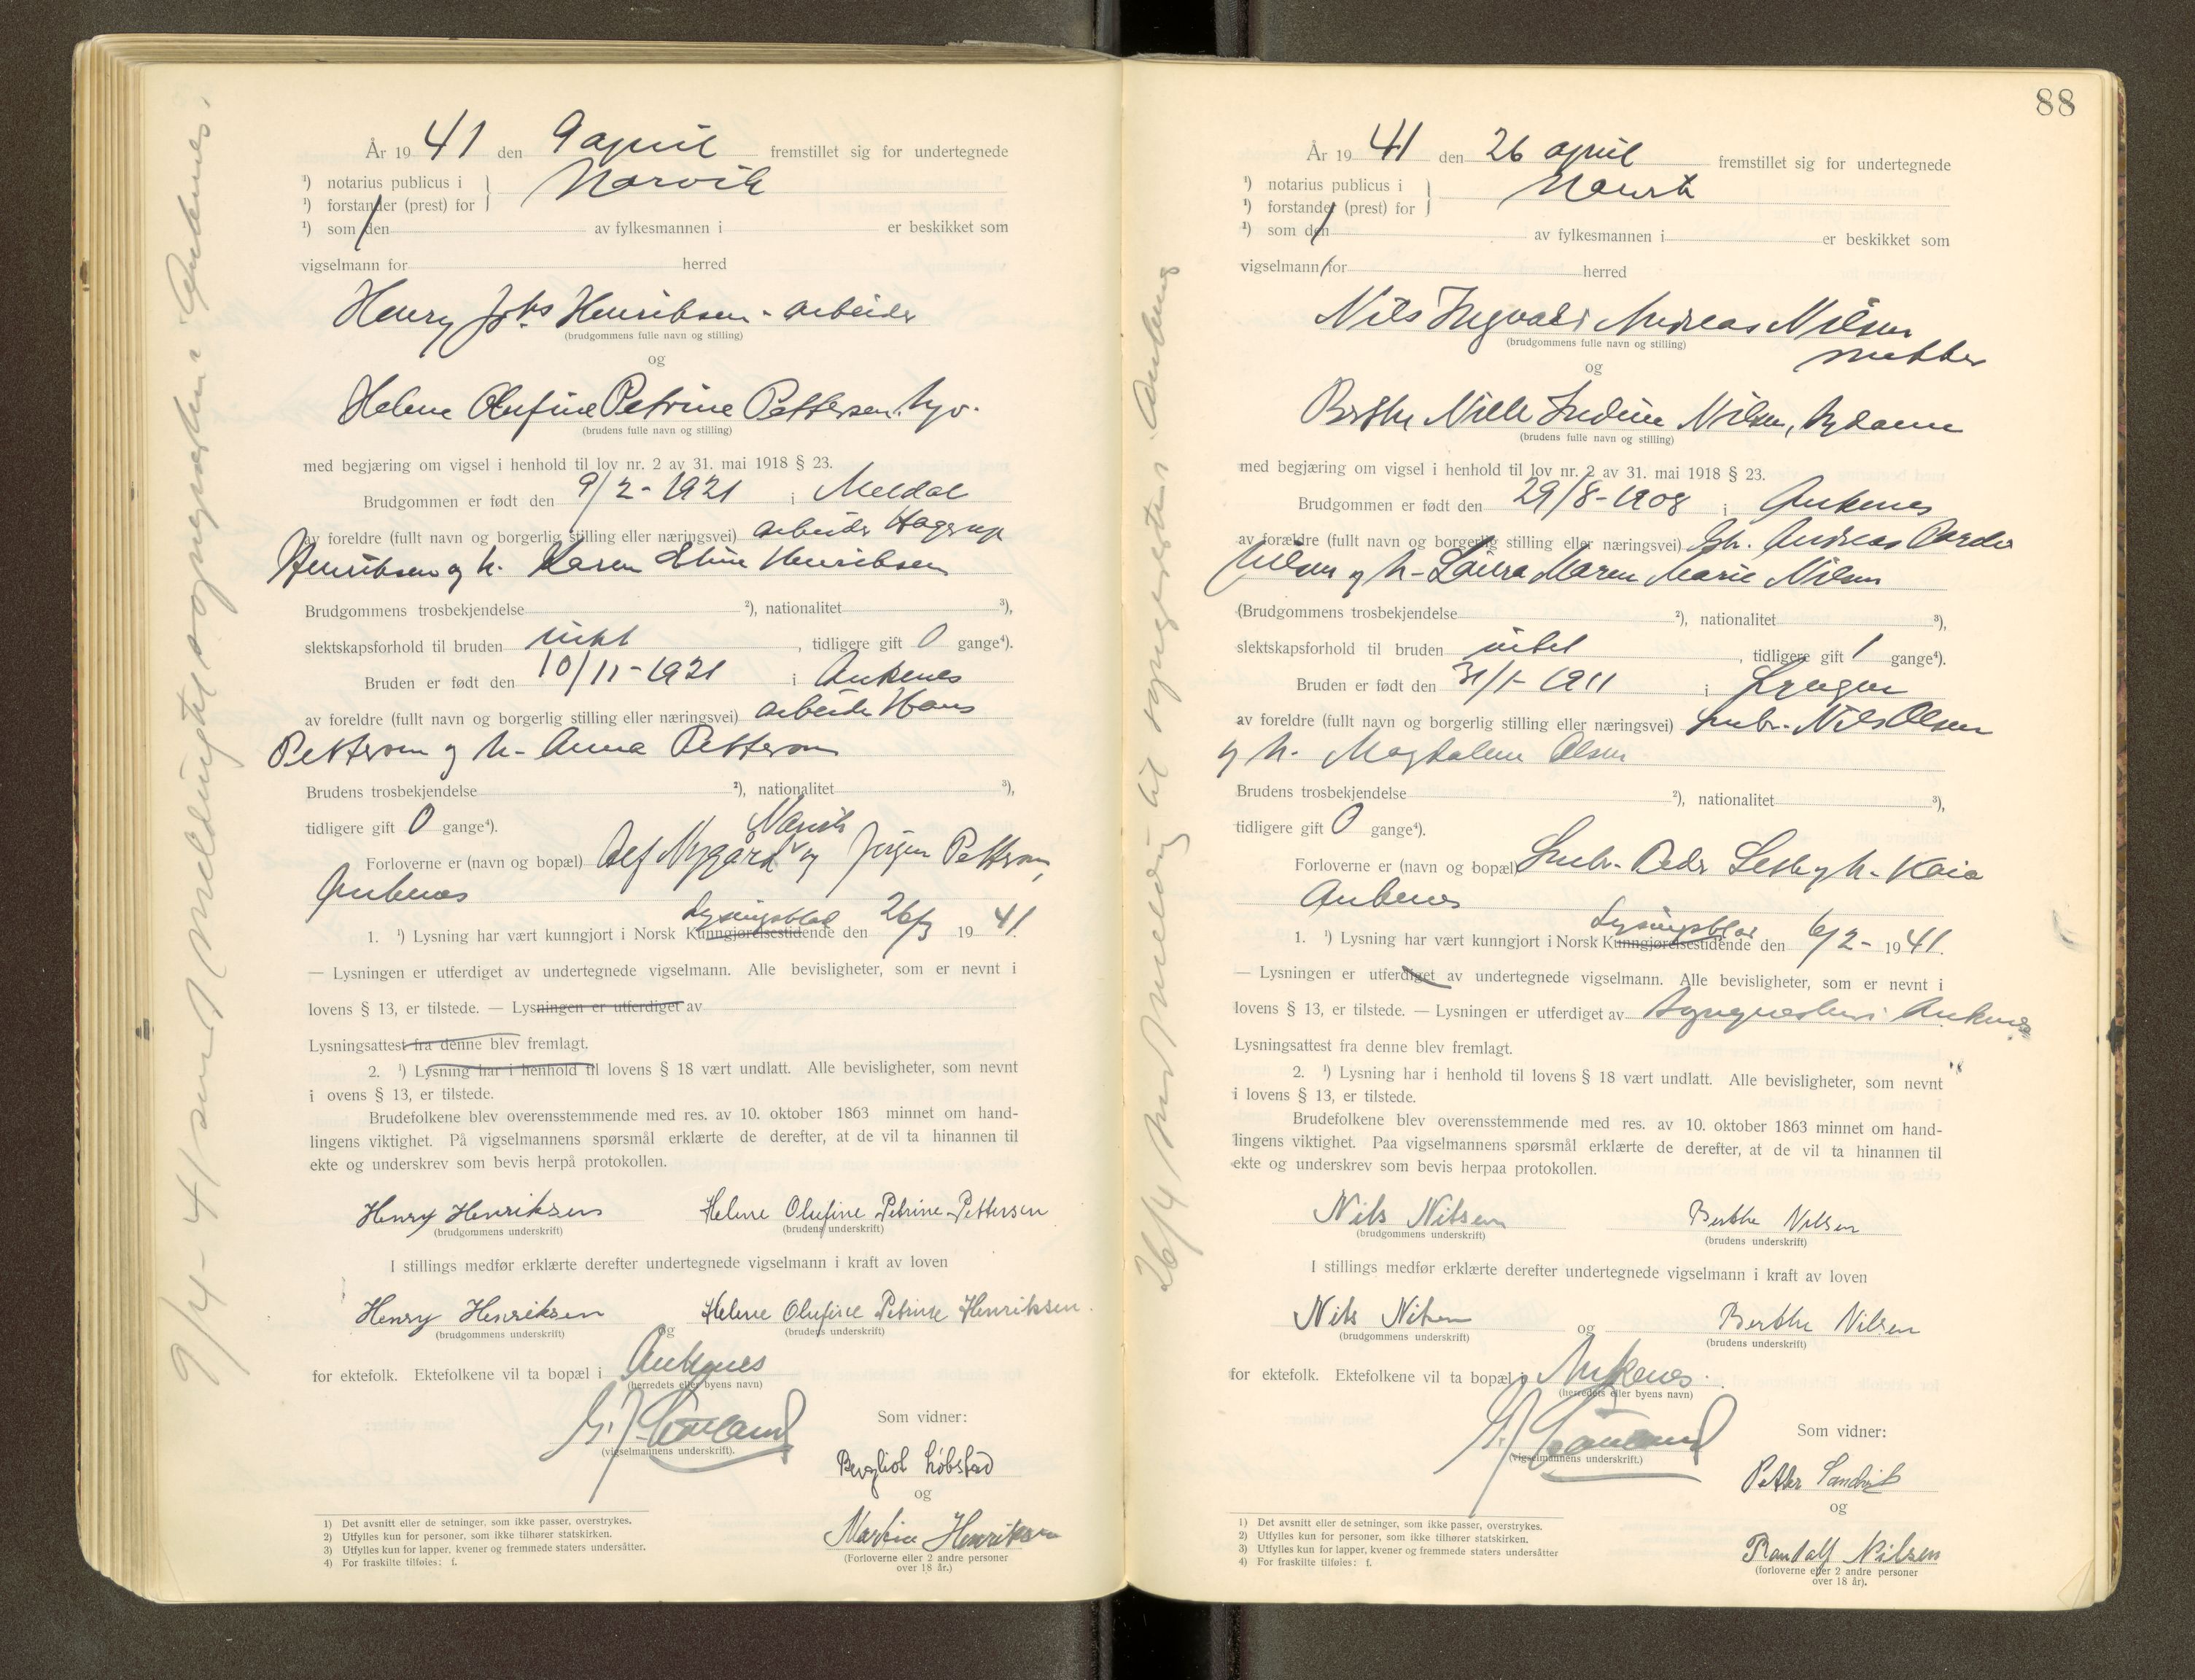 År 19 41 den 9 april fremstillet sig for undertegnede
¹) notarius publicus i
¹) forstander (prest) for
Narvik
¹) som den av fylkesmannen i er beskikket som
vigselmann for herred
Henry Johs Henriksen - arbeider
(brudgommens fulle navn og stilling)
og
Helene Olufine Petrine Pettersen, hjv.
(brudens fulle navn og stilling)
med begjæring om vigsel i henhold til lov nr. 2 av 31. mai 1918 § 23.
Brudgommen er født den 9/2-1921 i Meldal
av foreldre (fullt navn og borgerlig stilling eller næringsvei) arbeider Hagerup
Henriksen og h. Karen Eline Henriksen
Brudgommens trosbekjendelse ²), nationalitet ³),
slektskapsforhold til bruden intet , tidligere gift 0 gange⁴).
Bruden er født den 10/11-1921 i Ankenes
av foreldre (fullt navn og borgerlig stilling eller næringsvei) arbeider Hans
Pettersen og h. Anna Pettersen
Brudens trosbekjendelse ²), nationalitet ³),
tidligere gift 0 gange⁴).
Narvik
Forloverne er (navn og bopæl) Alf Nygård og Jørgen Pettersen,
Ankenes
Lysningsblad
1. ¹) Lysning har vært kunngjort i Norsk Kunngjørelsestidende den 26/3 19 41.
— Lysningen er utferdiget av undertegnede vigselmann. Alle bevisligheter, som er nevnt i
lovens § 13, er tilstede. — Lysningen er utferdiget av
Lysningsattest fra denne blev fremlagt.
2. ¹) Lysning har i henhold til lovens § 18 vært undlatt. Alle bevisligheter, som nevnt
i ovens § 13, er tilstede.
Brudefolkene blev overensstemmende med res. av 10. oktober 1863 minnet om hand-
lingens viktighet. På vigselmannens spørsmål erklærte de derefter, at de vil ta hinannen til
ekte og underskrev som bevis herpå protokollen.
Henry Henriksen Helene Olufine Petrine Pettersen
(brudgommens underskrift) (brudens underskrift)
I stillings medfør erklærte derefter undertegnede vigselmann i kraft av loven
Henry Henriksen og Helene Olufine Petrine Henriksen.
(brudgommens underskrift) (brudens underskrift)
for ektefolk. Ektefolkene vil ta bopæl i Ankenes
(herredets eller byens navn)
(vigselmannens underskrift).
Som vidner:
Bergliot Løbstad
og
Martin Henriksen
(Forloverne eller 2 andre personer
over 18 år.)
1) Det avsnitt eller de setninger, som ikke passer, overstrykes.
2) Utfylles kun for personer, som ikke tilhører statskirken.
3) Utfylles kun for lapper, kvener og fremmede staters undersåtter.
4) For fraskilte tilføies: f.
9/4-41 sendt melding til sognepresten i Ankenes.
88
År 19 41 den 26 april fremstillet sig for undertegnede
¹) notarius publicus i
¹) forstander (prest) for
Narvik
¹) som den av fylkesmannen i er beskikket som
vigselmann for herred
Nils Ingvald Andreas Nilsen
(brudgommens fulle navn og stilling)
snekker
og
Berthe Nille Indine Nilsen,
(brudens fulle navn og stilling)
med begjæring om vigsel i henhold til lov nr. 2 av 31. mai 1918 § 23.
Brudgommen er født den 29/8-1908 i Ankenes
av forældre (fullt navn og borgerlig stilling eller næringsvei) Andreas
Nilsen og h. Laura Maren Marie Nilsen
(Brudgommens trosbekjendelse ²), nationalitet ³),
slektskapsforhold til bruden intet , tidligere gift 1 gange⁴).
Bruden er født den 31/1-1911 i Lyngen
av foreldre (fullt navn og borgerlig stilling eller næringsvei) Småbr. Nils Olsen
og h. Magdalene Olsen
Brudens trosbekjendelse ²), nationalitet ³),
tidligere gift 0 gange⁴).
Forloverne er (navn og bopæl) Småbr. Peder og h. Kaia
Ankenes
Lysningsblad
1. ¹) Lysning har vært kunngjort i Norsk Kunngjørelsestidende den 6/2- 19 41.
— Lysningen er utferdiget av undertegnede vigselmann. Alle bevisligheter, som er nevnt i
lovens § 13, er tilstede. — Lysningen er utferdiget av sognepresten i Ankenes
Lysningsattest fra denne blev fremlagt.
2. ¹) Lysning har i henhold til lovens § 18 vært undlatt. Alle bevisligheter, som nevnt
i lovens § 13, er tilstede.
Brudefolkene blev overensstemmende med res. av 10. oktober 1863 minnet om hand-
lingens viktighet. Paa vigselmannens spørsmål erklærte de derefter, at de vil ta hinannen til
ekte og underskrev som bevis herpaa protokollen.
Nils Nilsen Berthe Nilsen
(brudgommens underskrift) (brudens underskrift)
I stillings medfør erklærte derefter undertegnede vigselmann i kraft av loven
Nils Nilsen og Berthe Nilsen
(brudgommens underskrift) (brudens underskrift)
for ektefolk. Ektefolkene vil ta bopæl i Ankenes.
(herredets eller byens navn)
(vigselmannens underskrift.)
Som vidner:
Petter Sandvik
og
Randolf Nilsen
(forloverne eller 2 andre personer
over 18 år).
1) Det avsnitt eller de setninger, som ikke passer, overstrykes.
2) Utfylles kun for personer, som ikke tilhører statskirken.
3) Utfylles kun for lapper, kvener og fremmede staters undersåtter
4) For fraskilte tilføies: f.
26/4 sendt melding til sognepresten i Ankenes